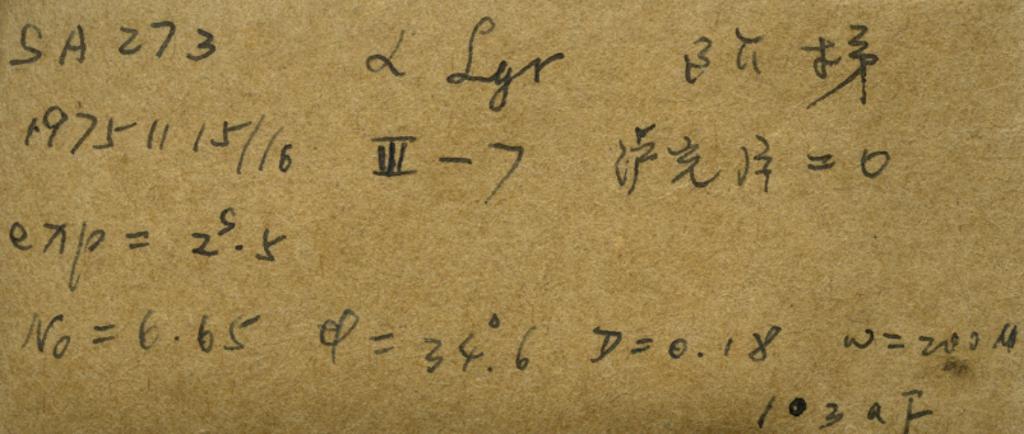 SA 273 α Lyr 阶梯
1975 11 15/16 III-7 滤光片=0
exp = 2ˢ.5
N₀ = 6.65 φ = 34°.6 D=0.18 w=200μ
103aF